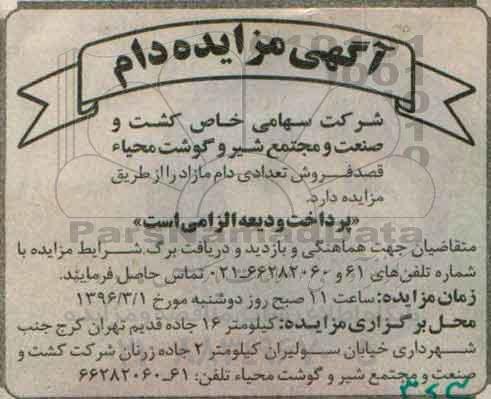 آگهی مزایده دام
شرکت سهامی خاص کشت و
صنعت و مجتمع شیر و گوشت محیاء
قصد فروش تعدادی دام مازاد را از طریق
مزایده دارد.
«پرداخت ودیعه الزامی است»
متقاضیان جهت هماهنگی و بازدید و دریافت برگ شرایط مزایده با
شماره تلفن‌های ۶۱ و ۶۶۲۸۲۰۶۰-۰۲۱ تماس حاصل فرمایند.
زمان مزایده: ساعت ۱۱ صبح روز دوشنبه مورخ ۱۳۹۶/۳/۱
محل برگزاری مزایده: کیلومتر ۱۶ جاده قدیم تهران کرج جنب
شهرداری خیابان سولیران کیلومتر ۲ جاده زرنان شرکت کشت و
صنعت و مجتمع شیر و گوشت محیاء تلفن: ۶۱-۶۶۲۸۲۰۶۰
ParsNamadData